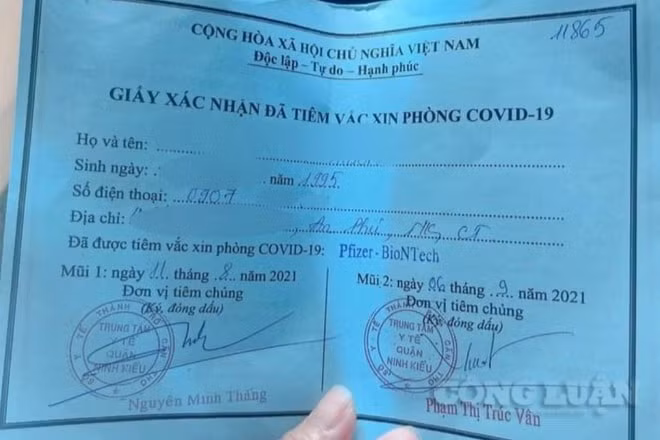 11865
CỘNG HÒA XÃ HỘI CHỦ NGHĨA VIỆT NAM
Độc lập - Tự do - Hạnh phúc
GIẤY XÁC NHẬN ĐÃ TIÊM VẮC XIN PHÒNG COVID-19
Họ và tên:
Sinh ngày: năm 1995
Số điện thoại: 0907
Địa chỉ: An Phú, NK, CT
Đã được tiêm vắc xin phòng COVID-19: Pfizer - BioNTech
Mũi 1: ngày 11 tháng 8 năm 2021
Đơn vị tiêm chủng
(Ký, đóng dấu)
SỞ Y TẾ THÀNH PHỐ CẦN THƠ
TRUNG TÂM
Y TẾ
QUẬN
NINH KIỀU
Nguyễn Minh Thắng
Mũi 2: ngày 06 tháng 9 năm 2021
Đơn vị tiêm chủng
(Ký, đóng dấu)
SỞ Y TẾ THÀNH PHỐ CẦN THƠ
TRUNG TÂM
Y TẾ
QUẬN
NINH KIỀU
Phạm Thị Trúc Vân
CÔNG LUẬN